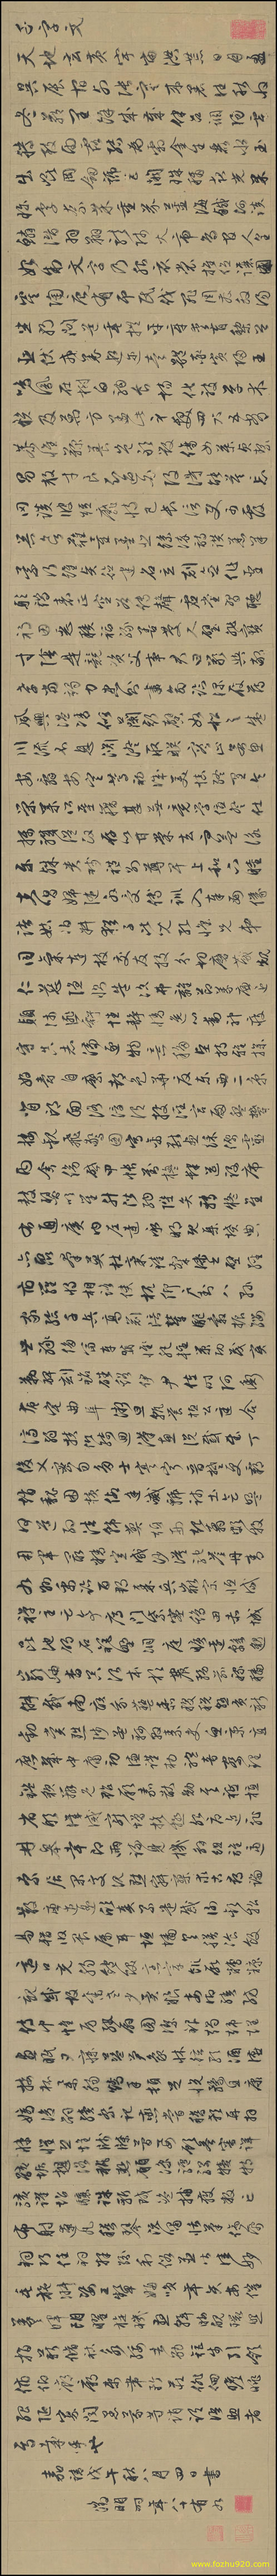 千字文
天地玄黃宇宙洪荒日月盈
昃辰宿列張寒來暑往秋收
冬藏閏餘成歲律呂調陽雲
騰致雨露結為霜金生麗水玉
出崑岡劍號巨闕珠稱夜光果
珍李柰菜重芥薑海鹹河淡
鱗潛羽翔龍師火帝鳥官人皇
始制文字乃服衣裳推位讓國
有虞陶唐弔民伐罪周發殷湯
坐朝問道垂拱平章愛育黎首
臣伏戎羌遐邇壹體率賓歸王
鳴鳳在樹白駒食場化被草木
賴及萬方蓋此身髮四大五常
恭惟鞠養豈敢毀傷女慕貞潔
男效才良知過必改得能莫忘
罔談彼短靡恃己長信使可覆
器欲難量墨悲絲染詩讚羔羊
景行維賢克念作聖德建名立
形端表正空谷傳聲虛堂習聽
禍因惡積福緣善慶尺璧非寶
寸陰是競資父事君曰嚴與敬
孝當竭力忠則盡命臨深履薄
夙興溫凊似蘭斯馨如松之盛
川流不息淵澄取映容止若思
言辭安定篤初誠美慎終宜令
榮業所基籍甚無竟學優登仕
攝職從政存以甘棠去而益詠
樂殊貴賤禮別尊卑上和下睦
夫唱婦隨外受傅訓入奉母儀
諸姑伯叔猶子比兒孔懷兄弟
同氣連枝交友投分切磨箴規
仁慈隱惻造次弗離節義廉退
顛沛匪虧性靜情逸心動神疲
守真志滿逐物意移堅持雅操
好爵自縻都邑華夏東西二京
背邙面洛浮渭據涇宮殿盤鬱
樓觀飛驚圖寫禽獸畫綵仙靈
丙舍傍啟甲帳對楹肆筵設席
鼓瑟吹笙升階納陛弁轉疑星
右通廣內左達承明既集墳典
亦聚群英杜稿鍾隸漆書壁經
府羅將相路俠槐卿戶封八縣
家給千兵高冠陪輦驅轂振纓
世祿侈富車駕肥輕策功茂實
勒碑刻銘磻溪伊尹佐時阿衡
奄宅曲阜微旦孰營桓公匡合
濟弱扶傾綺迴漢惠說感武丁
俊乂密勿多士寔寧晉楚更霸
趙魏困橫假途滅虢踐土會盟
何遵約法韓弊煩刑起翦頗牧
用軍最精宣威沙漠馳譽丹青
九州禹跡百郡秦并嶽宗恆岱
禪主云亭雁門紫塞雞田赤城
昆池碣石鉅野洞庭曠遠綿邈
巖岫杳冥治本於農務茲稼穡
俶載南畝我藝黍稷稅熟貢新
勸賞黜陟孟軻敦素史魚秉直
庶幾中庸勞謙謹敕聆音察理
鑑貌辨色貽厥嘉猷勉其祗植
省躬譏誡寵增抗極殆辱近恥
林皋幸即兩疏見機解組誰逼
索居閒處沉默寂寥求古尋論
散慮逍遙欣奏累遣慼謝歡招
渠荷的歷園莽抽條枇杷晚翠
梧桐早凋陳根委翳落葉飄颻
遊鯤獨運凌摩絳霄耽讀翫市
寓目囊箱易輶攸畏屬耳垣牆
具膳飡飯適口充腸飽飫烹宰
飢厭糟糠親戚故舊老少異糧
妾御績紡侍巾帷房紈扇圓潔
銀燭煒煌晝眠夕寐藍筍象床
絃歌酒讌接杯舉觴矯手頓足
悅豫且康嫡後嗣續祭祀烝嘗
稽顙再拜悚懼恐惶牋牒簡要
顧答審詳骸垢想浴執熱願涼
驢騾犢特駭躍超驤誅斬賊盜
捕獲叛亡布射遼丸嵇琴阮嘯
恬筆倫紙鈞巧任釣釋紛利俗
並皆佳妙毛施淑姿工顰妍笑
年矢每催曦暉朗曜璇璣懸斡
晦魄環照指薪修祜永綏吉劭
矩步引領俯仰廊廟束帶矜莊
徘徊瞻眺孤陋寡聞愚蒙等誚
謂語助者
焉哉乎也
嘉靖戊午秋八月四日書
徵明時年八十有九
www.fozhu920.com